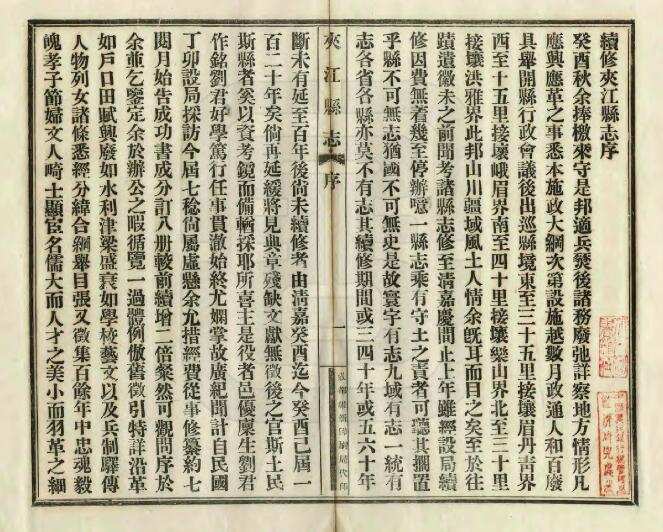 續修夾江縣志序
癸酉秋余捧檄來守是邦適兵燹後諸務廢弛詳察地方情形凡
應興應革之事悉本施政大綱次第設施越數月政通人和百廢
具舉開縣行政會議後出巡縣境東至三十五里接壤眉丹青界
西至十五里接壤峨眉界南至四十里接壤樂山界北至三十里
接壤洪雅界此邦山川疆域風土人情余旣耳而目之矣至於往
蹟遺徽未之前聞考諸縣志修至清嘉慶間止上年雖經設局續
修因費無着幾至停辦噫一縣志乘有守土之責者可聽其擱置
乎縣不可無志猶國不可無史是故寰宇有志九域有志一統有
志各省各縣亦莫不有志其續修期間或三四十年或五六十年
夾江縣志 序 一
斷未有延至百年後尙未續修者由清嘉癸酉迄今癸酉已屆一
百二十年矣倘再延緩將見典章殘缺文獻無徵後之官斯土民
斯縣者奚以資考鏡而備輶採耶所喜主是役者邑優廩生劉君
作銘劉君好學篤行任事貫澈始終尤嫻掌故廣紀聞計自民國
丁卯設局採訪今屆七稔尙屬虛懸余尤措經費從事修纂約七
閱月始告成功書成分訂八册較前續增二倍粲然可觀問序於
余並乞鑒定余於辦公之暇循覽一過體例倣舊徵引特詳沿革
如戶口田賦興廢如水利津梁盛衰如學校藝文以及兵制驛傳
人物列女諸條悉經分緯合綱舉目張又徵集百餘年中忠魂毅
魄孝子節婦文人畸士顯宦名儒大而人才之美小而羽革之細